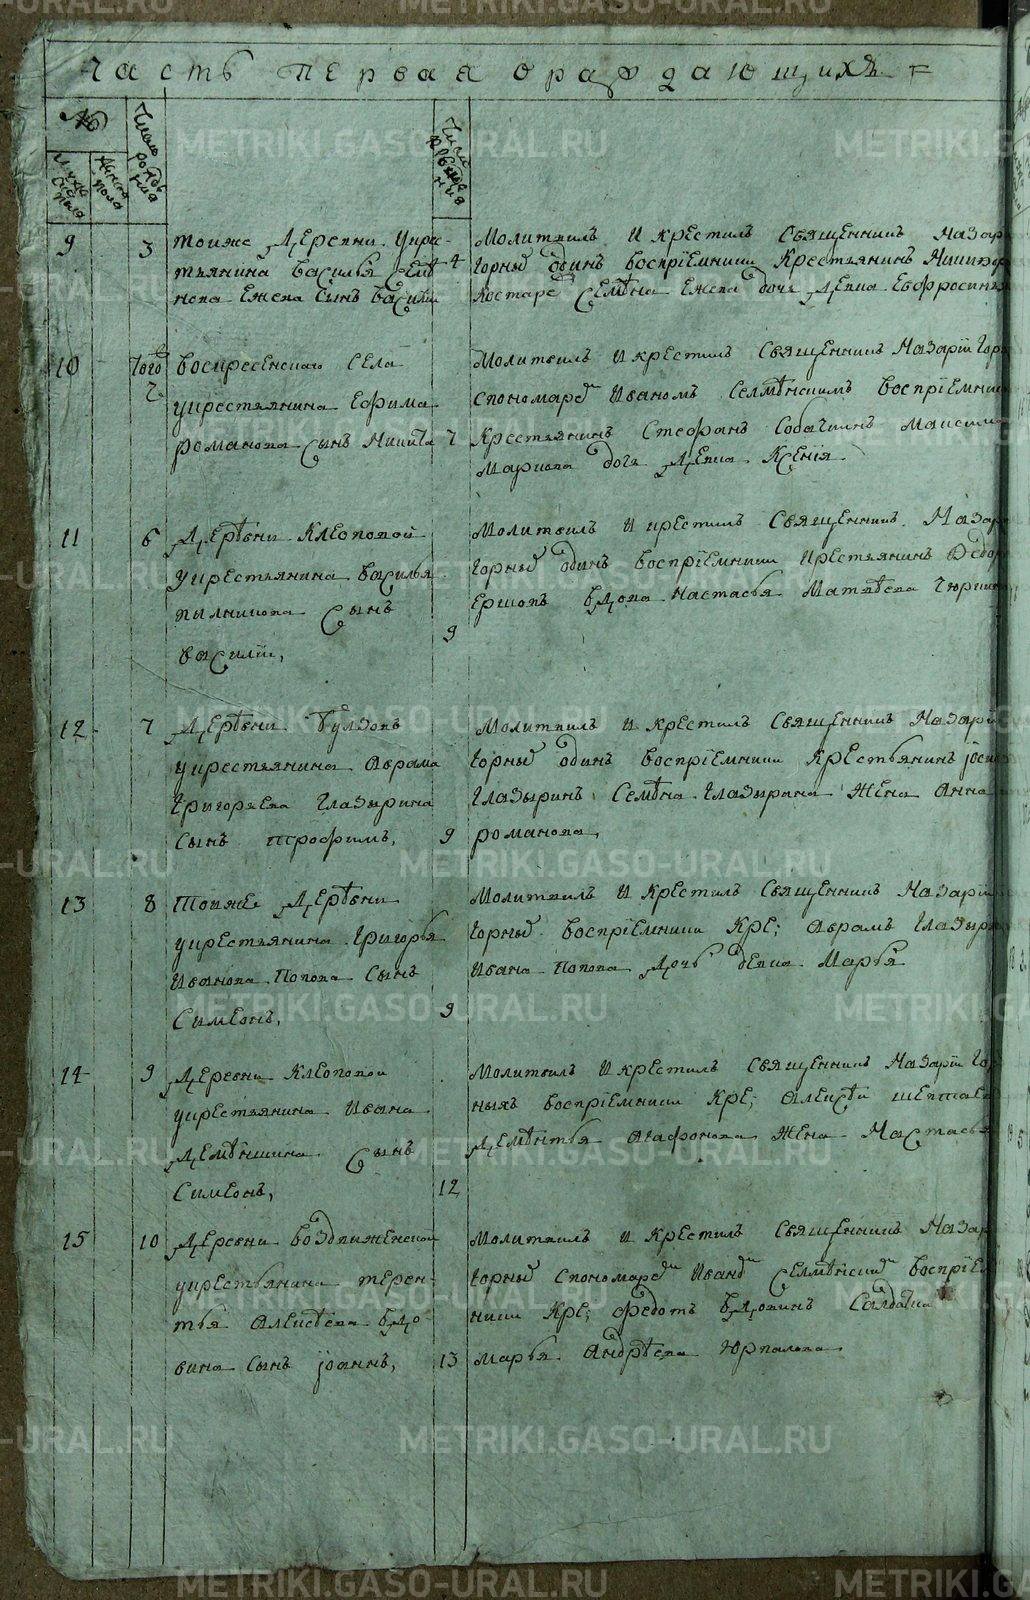 часть первая о раждающихъ =
№
Число рождения
Число крещения
мужеска пола
женска пола
9 3 тоижс Деревни укре-
стьянина Василья Семе
нова Ежева Сынъ Василии
4 Молитвилъ И крестилъ Священникъ Назар
Горныхъ одинъ воспрїемники Крестьянинъ Никифор
Костарев Семѣна Ежева дочь Девка Евфросинья
10 Того ч. Воскресенскаго Села
укрестьянина Ефима
романова Сынъ Никита
7 Молитвилъ И крестилъ Священникъ Назарїй Горн
спономарем Иваномъ Селмѣнскимъ воспрїемники
Крестьянинъ Стефанъ Собакинъ Максима
Маркова дочь Девка Ксенїя
11 6 Дерѣвни Клеоповой
укрестьянина Василья
пылникова Сынъ
василїи,
9 Молитвилъ И крестилъ Священникъ Назар
Горныхъ одинъ воспрїемники Крестьянинъ Федор
Ершовъ вдова Настасья Матвѣева Чюркина
12 7 Дерѣвни Бузовъ
укрестьянина Аврама
Григорьева Глазырина
Сынъ трофимъ,
9 Молитвилъ И крестилъ Священникъ Назарїй
Горныхъ одинъ воспрїемники Крестьянинъ
Глазыринъ Семѣна Глазырина Жена Анна
романова,
13 8 Тоиже Дерѣвни
укрестьянина Григорья
Иванова Попова Сынъ
Симеонъ,
9 Молитвилъ И крестилъ Священникъ Назарїй
Горныхъ воспрїемники Кре; Аврамъ Глазыр
Ивана Попова Дочь девка Марья
14 9 Деревни Клеоповой
укрестьянина Ивана
Демѣншина Сынъ
Симеонъ,
12 Молитвилъ И крестилъ Священникъ Назарїй Гор
ныхъ воспрїемники Кре; Алексѣй шептаев
Демѣнтья Агафонова Жена Настасья
15 10 Деревни воздвиженской
укрестьянина терен-
тья Алексѣева вдо-
вина Сынъ Іоаннъ,
13 Молитвилъ и крестилъ Священникъ Назар
Горныхъ спономарем Иваном Селмѣнским воспрїем
ники Кре; федотъ вдовинъ Салдатка
марья Андрѣева